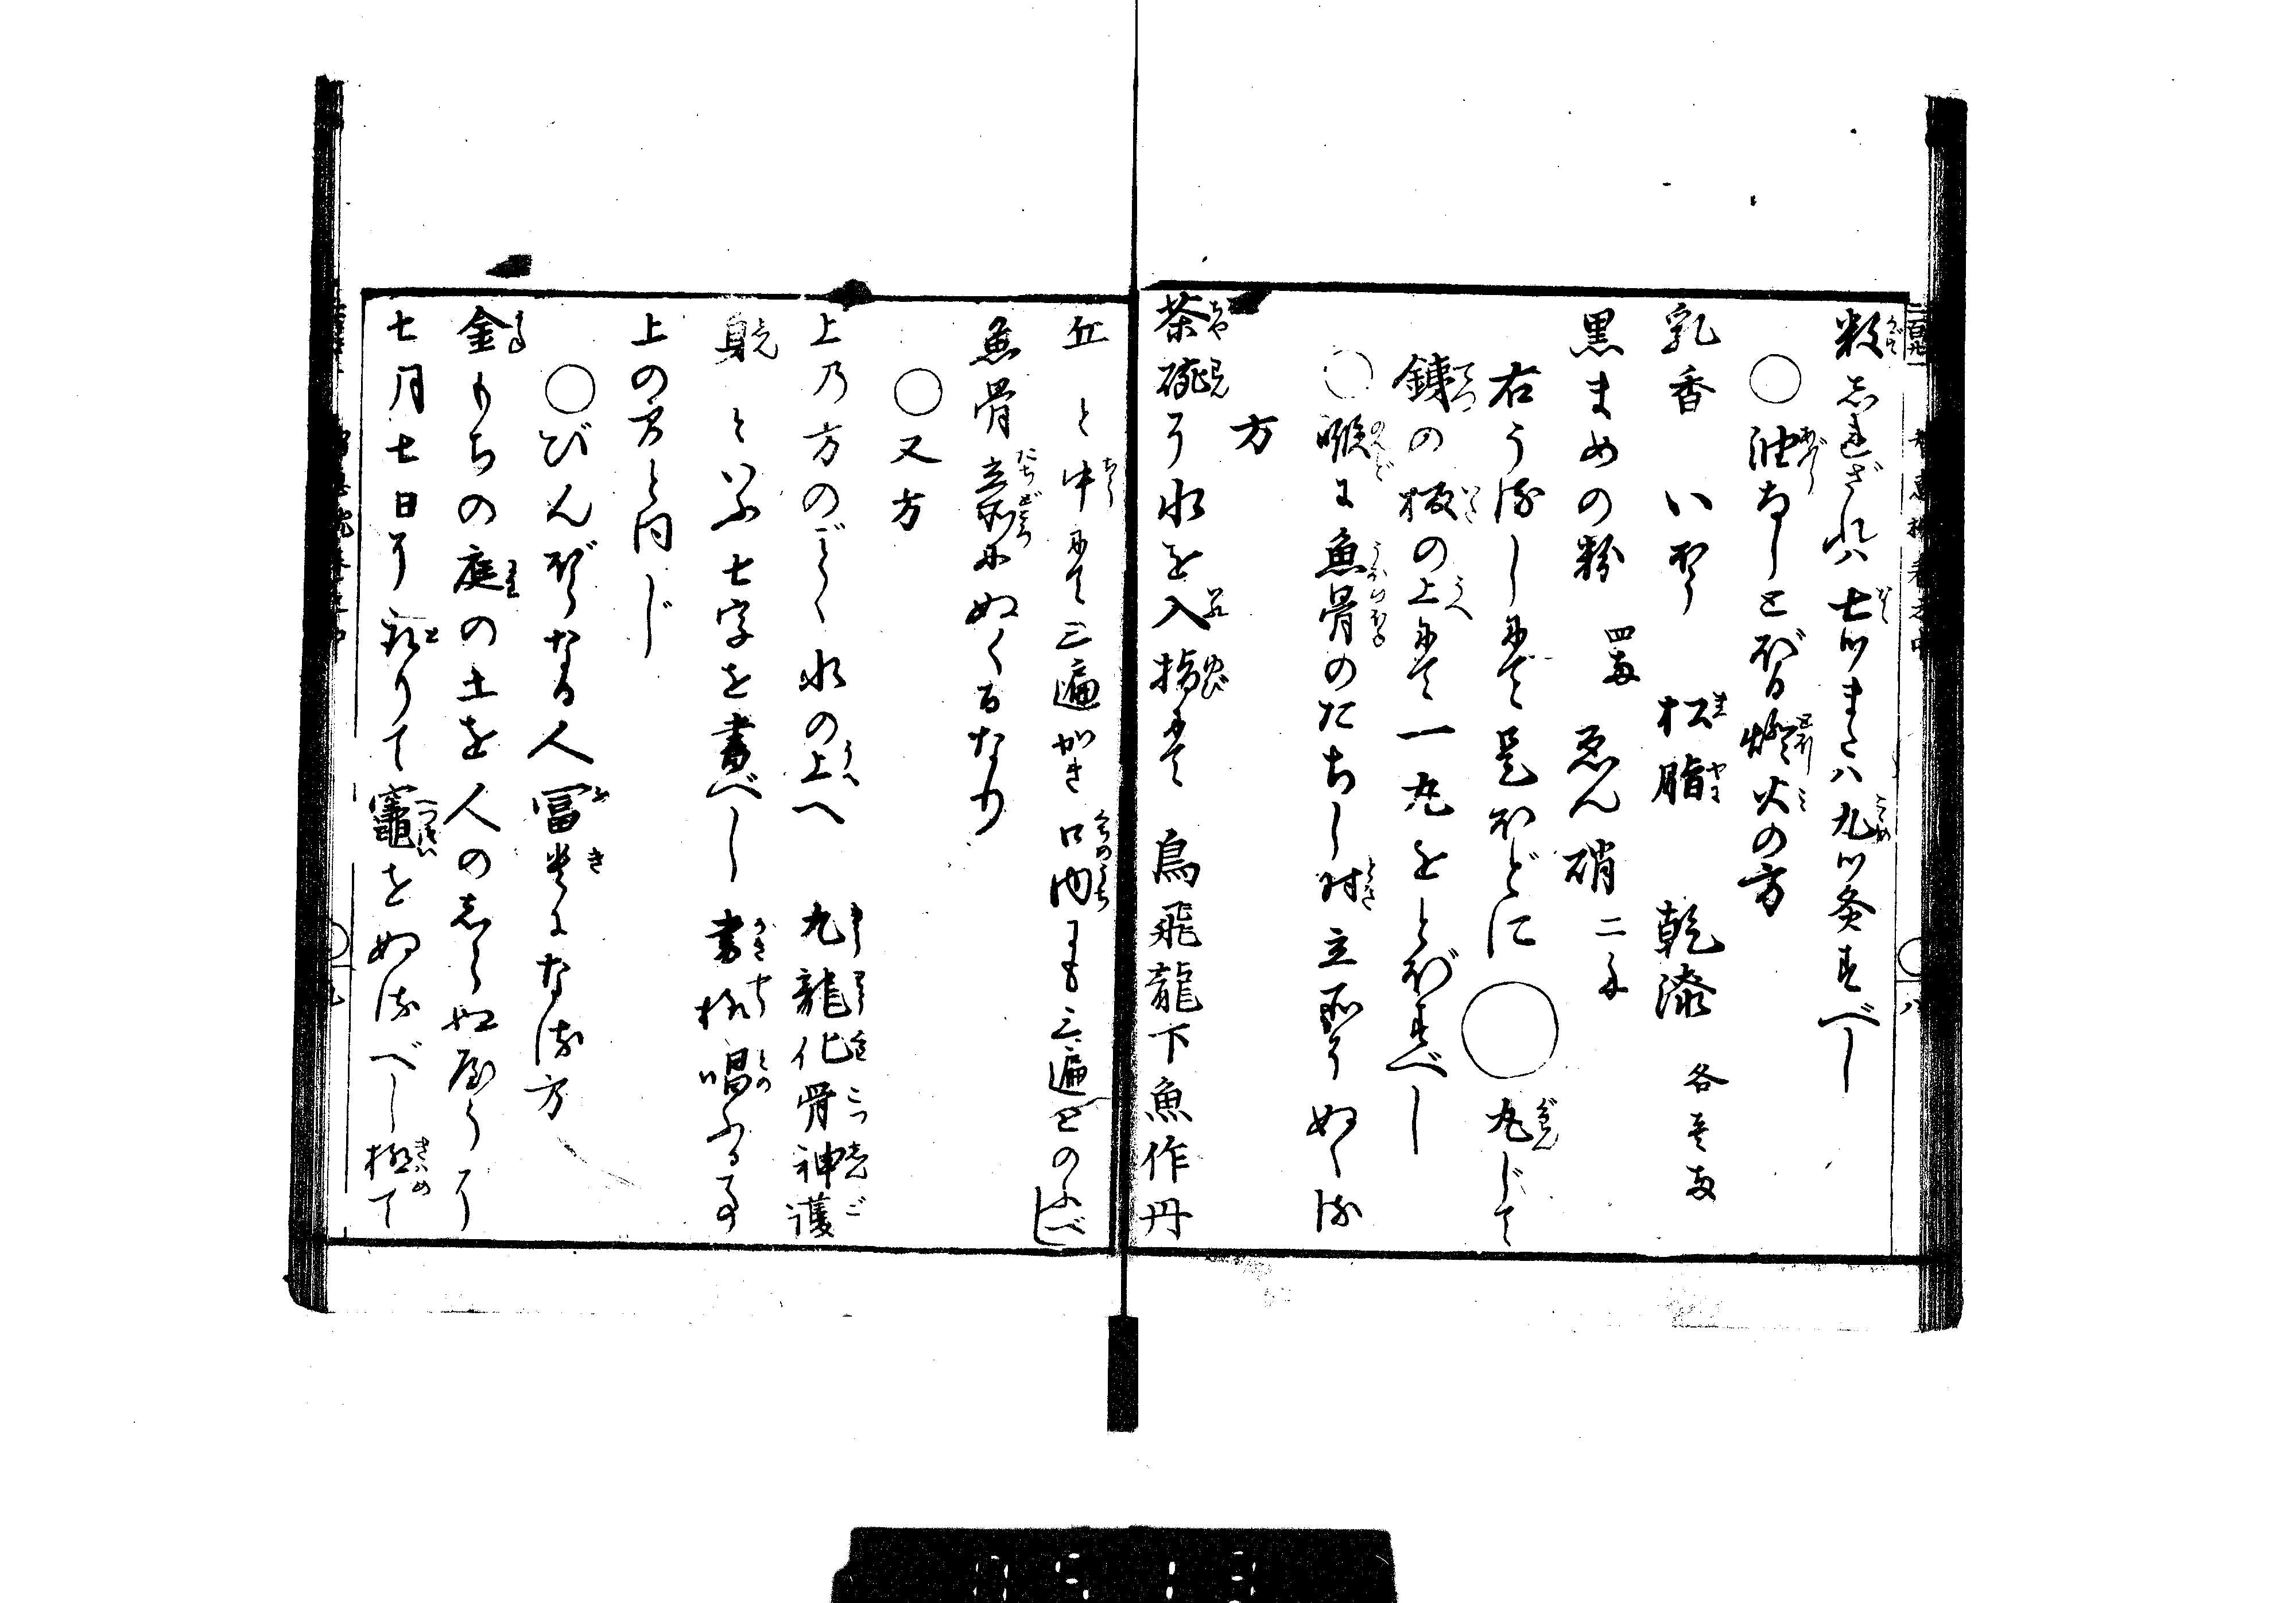 数志れざれハ七ツまたハ九ツ灸すべし
○油なしとぼる燈火の方
乳香 いわう 松脂 乾漆 各壱両
黒まめの粉 四両 ゑん硝 二両
右うるしにて是ほどに○丸じて
鉄の板の上にて一丸をとぼすべし
○喉に魚骨のたちし時立所にぬくる
方
茶碗に水を入指にて 鳥飛龍下魚作丹
丘と中にて三遍かき口内にも三遍となふべし
魚骨立所にぬくるなり
○又方
上乃方のごとく水の上へ 九龍化骨神護
身といふ七字を書べし書様唱ふる事
上の方と同じ
○びんぼうなる人冨貴になる方
金もちの庭の土を人の志らぬ屋うに
七月七日に取りて竈をぬるべし極て